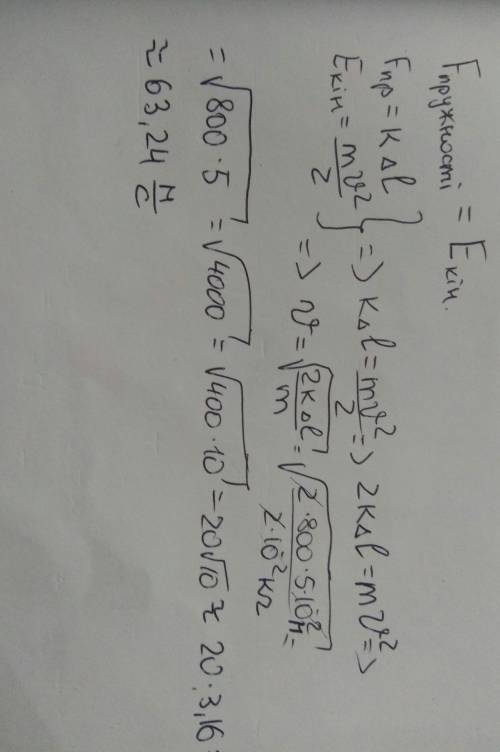 Fпружності = Eкін.
Fпр = kΔl
Eкін = mϑ²/2 } => kΔl = mϑ²/2 => 2kΔl = mϑ² =>
=> ϑ = √(2kΔl/m) = √(2·800·5·10⁻²н/2·10⁻²кг) =
= √800·5 = √4000 = √400·10 = 20√10 ≈ 20·3,16 =
≈ 63,24 м/с